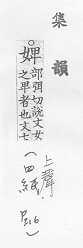 集韻
。婢
部弭切說文女
之卑者也文七
上聲
(四紙, P.316)